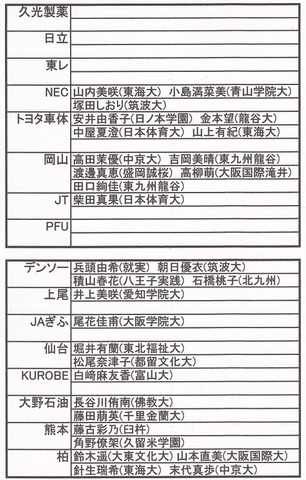 久光製薬
日立
東レ
NEC 山内美咲(東海大) 小島満菜美(青山学院大)
塚田しおり(筑波大)
トヨタ車体 安井由香子(日ノ本学園) 金本望(龍谷大)
中屋夏澄(日本体育大) 山上有紀(東海大)
岡山 高田茉優(中京大) 吉岡美晴(東九州龍谷)
渡邊真恵(盛岡誠桜) 高柳萌(大阪国際滝井)
田口絢佳(東九州龍谷)
JT 柴田真果(日本体育大)
PFU
デンソー 兵頭由希(就実) 朝日優衣(筑波大)
積山春花(八王子実践) 石橋桃子(北九州)
上尾 井上美咲(愛知学院大)
JAぎふ 尾花佳甫(大阪学院大)
仙台 堀井有蘭(東北福祉大)
松尾奈津子(都留文化大)
KUROBE 白﨑麻友香(富山大)
大野石油 長谷川侑南(佛教大)
藤田萌英(千里金蘭大)
熊本 藤古彩乃(臼杵)
角野僚架(久留米学園)
柏 鈴木遥(大東文化大) 山本直美(大阪国際大)
針生瑞希(東海大) 末代真歩(中京大)